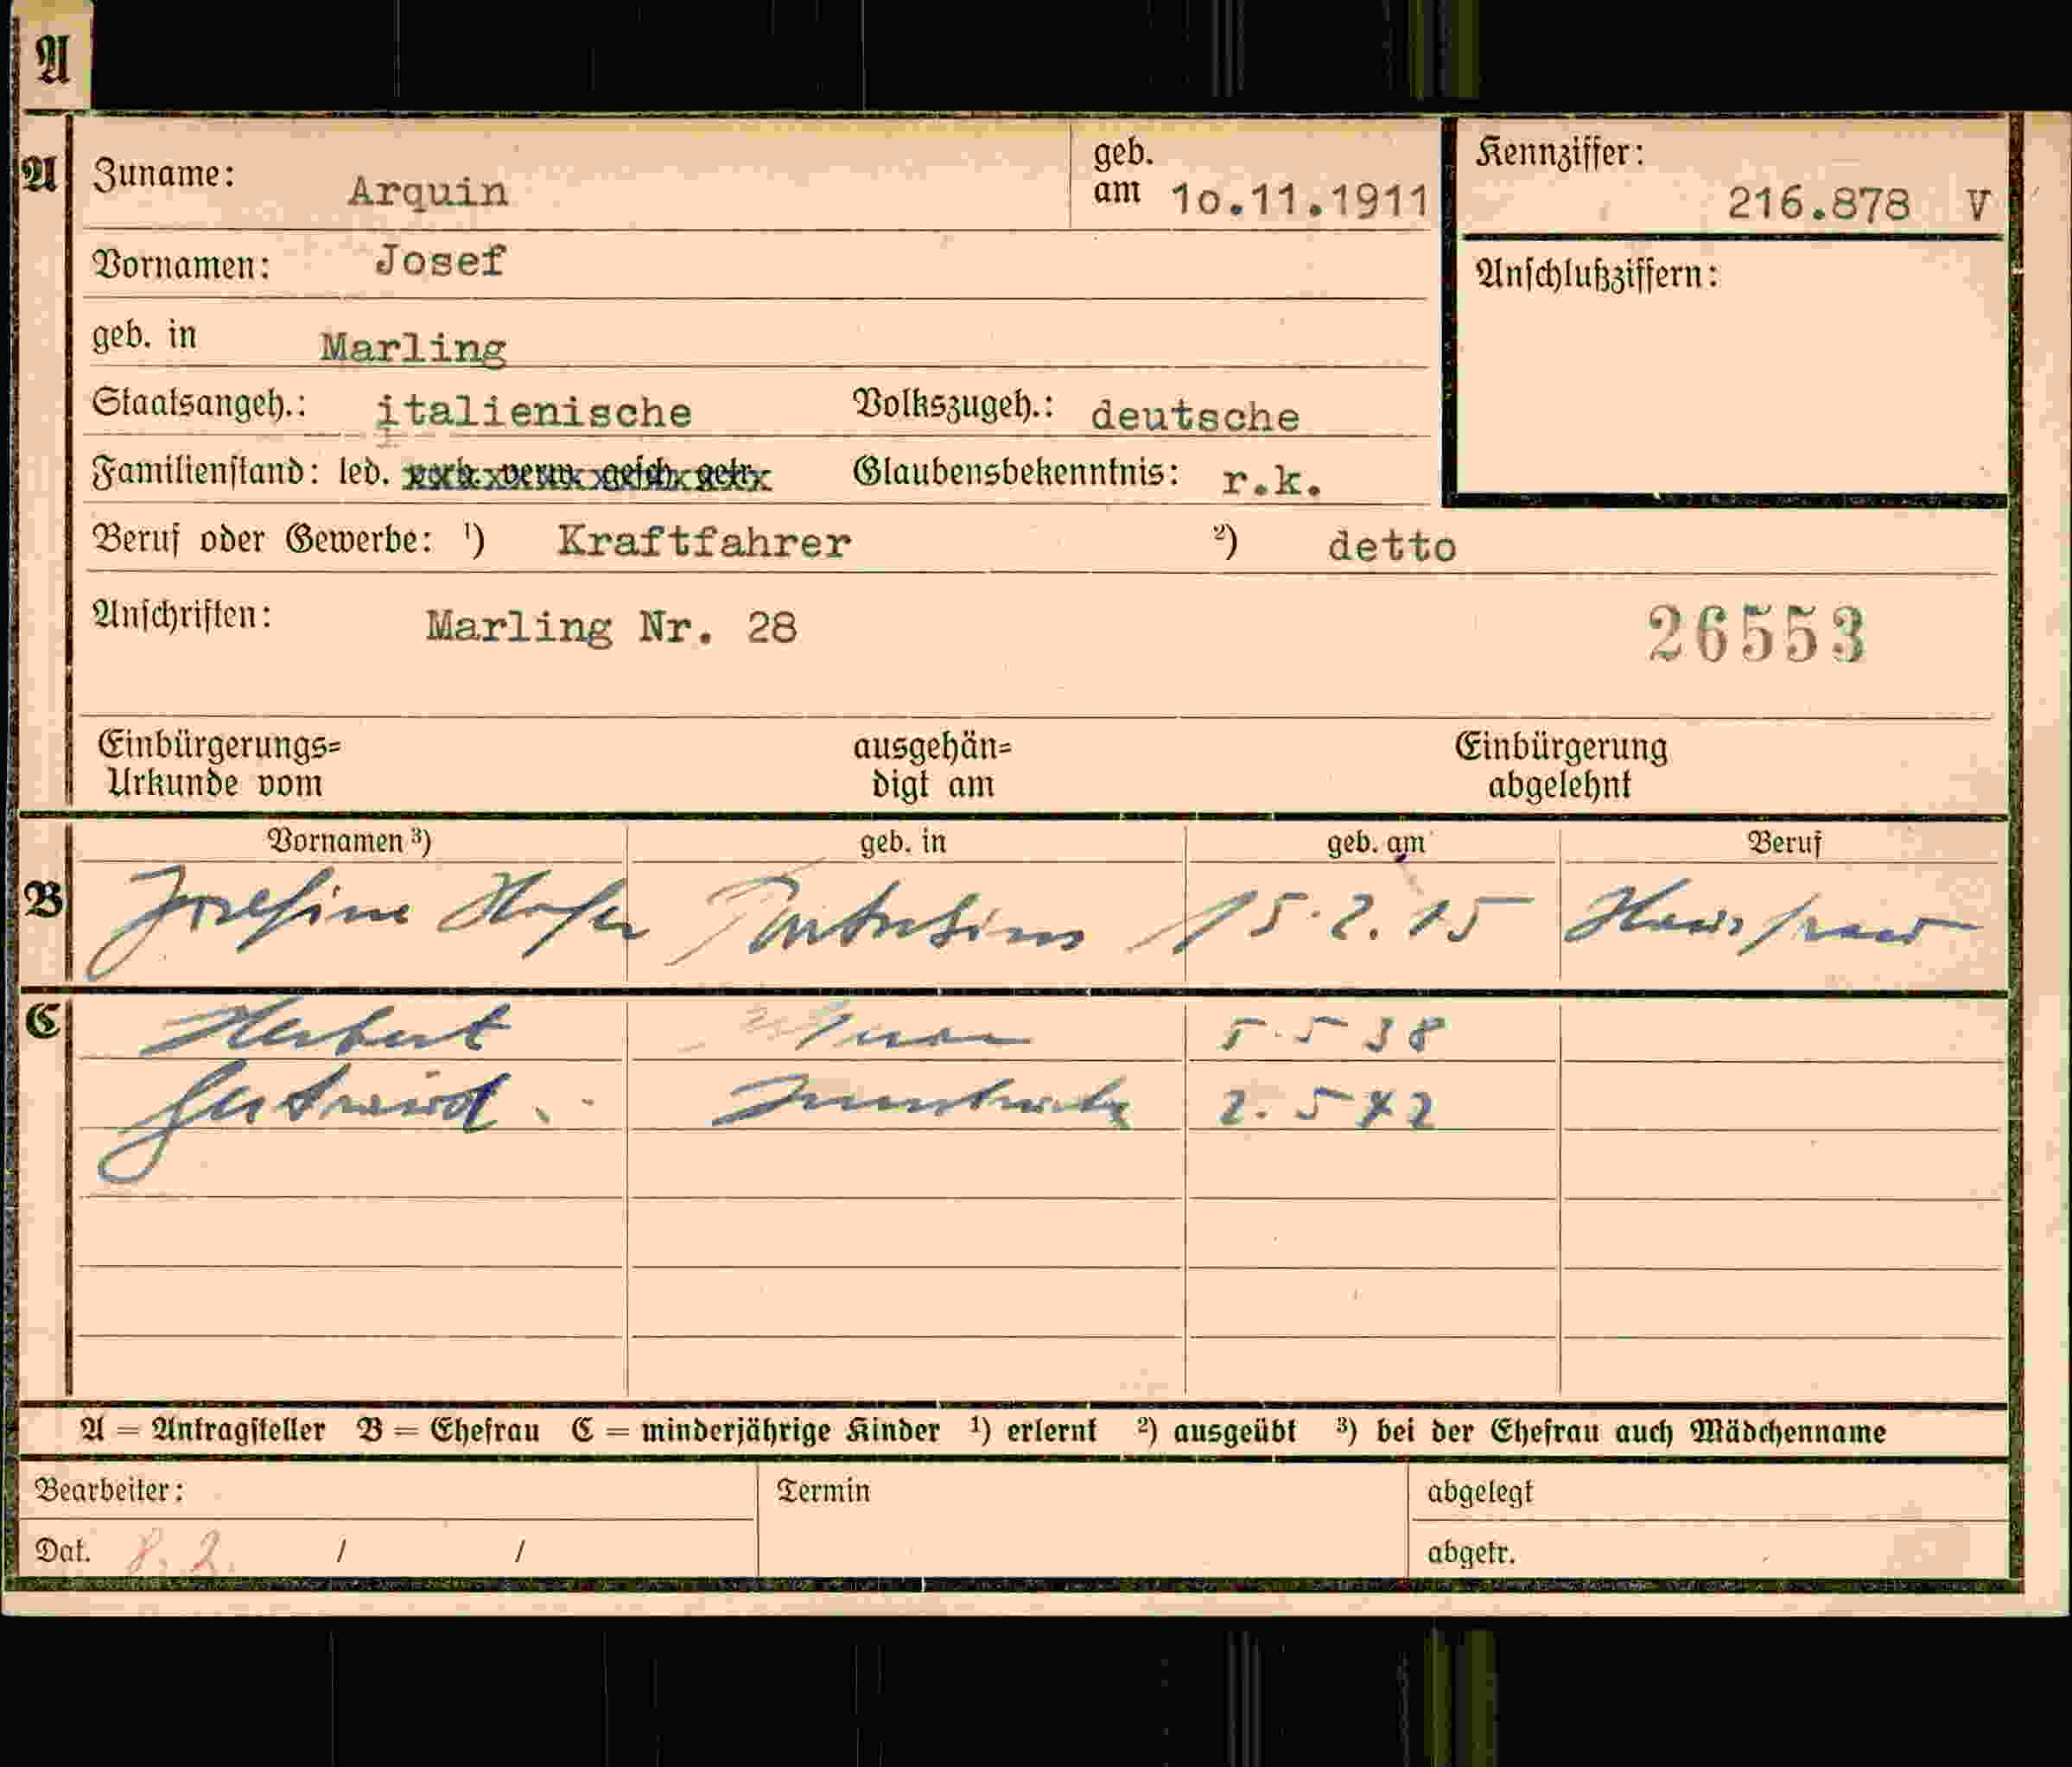 A
A Zuname: Arquin geb. am 10.11.1911 Kennziffer: 216.878 V
Vornamen: Josef Anschlußziffern:
geb. in Marling
Staatsangeh.: italienische Volkszugeh.: deutsche
Familienstand: led. verh. verw. gesch. getr. Glaubensbekenntnis: r.k.
Beruf oder Gewerbe: ¹) Kraftfahrer ²) detto
Anschriften: Marling Nr. 28 26553
Einbürgerungs= ausgehän= Einbürgerung
Urkunde vom digt am abgelehnt
Vornamen ³) geb. in geb. am Beruf
B Josefine Hofer 15.2.15 Hausfrau
C Herbert 5.5 38
Gertraud Innsbruck 2.5 42
A = Antragsteller B = Ehefrau C = minderjährige Kinder ¹) erlernt ²) ausgeübt ³) bei der Ehefrau auch Mädchenname
Bearbeiter: Termin abgelegt
Dat. 8.2. / / abgetr.